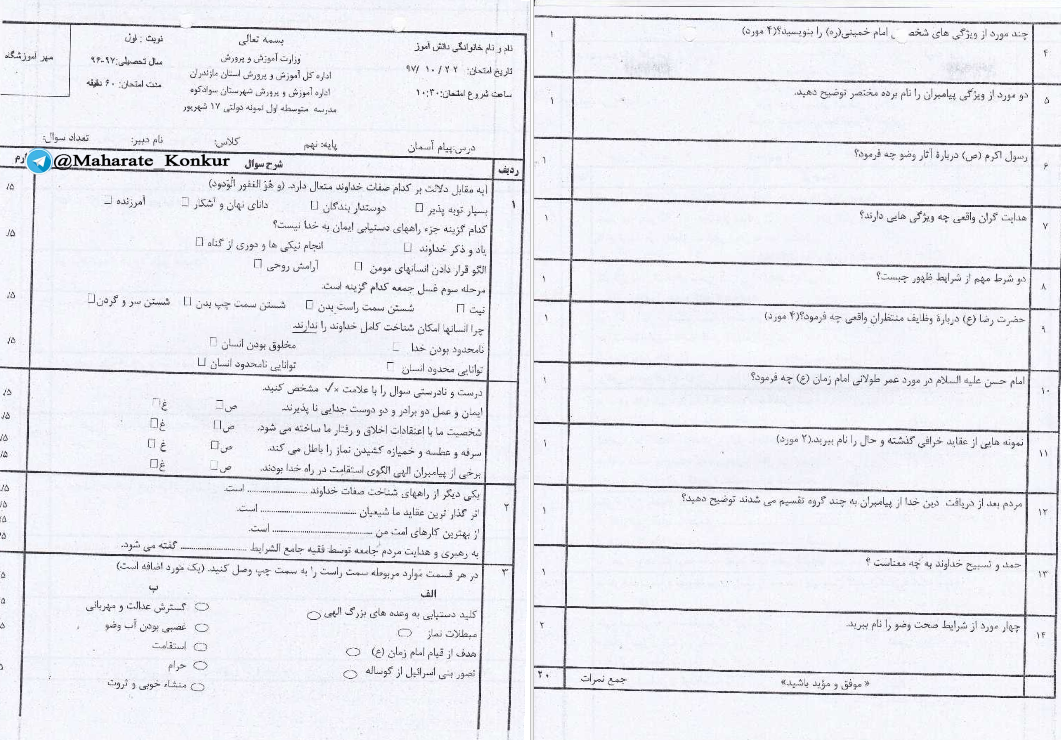 نام و نام خانوادگی دانش آموز
تاریخ امتحان: ۹۷/ ۱۰ / ۲۲
ساعت شروع امتحان:۱۰:۳۰
بسمه تعالی
وزارت آموزش و پرورش
اداره کل آموزش و پرورش استان مازندران
اداره آموزش و پرورش شهرستان سوادکوه
مدرسه متوسطه اول نمونه دولتی ۱۷ شهریور
نوبت : اول
سال تحصیلی:۹۷-۹۶
مدت امتحان: ۶۰ دقیقه
مهر آموزشگاه
درس:پیام آسمان پایه: نهم کلاس: نام دبیر: تعداد سوال:
@Maharate_Konkur
ردیف شرح سوال
۱ آیه مقابل دلالت بر کدام صفات خداوند متعال دارد. (و هُوَ الغفور الوَدود) ۵/
بسیار توبه پذیر □ دوستدار بندگان □ دانای نهان و آشکار □ آمرزنده □
کدام گزینه جزء راههای دستیابی ایمان به خدا نیست؟ ۵/
یاد و ذکر خداوند □ انجام نیکی ها و دوری از گناه □
الگو قرار دادن انسانهای مومن □ آرامش روحی □
مرحله سوم غسل جمعه کدام گزینه است. ۵/
نیت □ شستن سمت راست بدن □ شستن سمت چپ بدن □ شستن سر و گردن □
چرا انسانها امکان شناخت کامل خداوند را ندارند.
نامحدود بودن خدا □ مخلوق بودن انسان □ ۵/
توانایی محدود انسان □ توانایی نامحدود انسان □
درست و نادرستی سوال را با علامت ×√ مشخص کنید. ۵/
ایمان و عمل دو برادر و دو دوست جدایی نا پذیرند. ص□ غ□ ۵/
شخصیت ما با اعتقادات اخلاق و رفتار ما ساخته می شود. ص□ غ□
سرفه و عطسه و خمیازه کشیدن نماز را باطل می کند. ص□ غ□ ۵/
برخی از پیامبران الهی الگوی استقامت در راه خدا بودند. ص□ غ□ ۵/
۲ یکی دیگر از راههای شناخت صفات خداوند .................... است. ۵/
اثر گذار ترین عقاید ما شیعیان ........................................ است.
از بهترین کارهای امت من ........................................ است.
به رهبری و هدایت مردم جامعه توسط فقیه جامع الشرایط .................... گفته می شود.
۳ در هر قسمت موارد مربوطه سمت راست را به سمت چپ وصل کنید. (یک مورد اضافه است)
الف ب
کلید دستیابی به وعده های بزرگ الهی ○ ○ گسترش عدالت و مهربانی
مبطلات نماز ○ ○ غصبی بودن آب وضو
هدف از قیام امام زمان (ع) ○ ○ استقامت
تصور بنی اسرائیل از گوساله ○ ○ حرام
○ منشاء خوبی و ثروت
۴ چند مورد از ویژگی های شخصی امام خمینی(ره) را بنویسید؟(۴ مورد) ۱
۵ دو مورد از ویژگی پیامبران را نام برده مختصر توضیح دهید. ۱
۶ رسول اکرم (ص) دربارۀ آثار وضو چه فرمود؟ ۱
۷ هدایت گران واقعی چه ویژگی هایی دارند؟ ۱
۸ دو شرط مهم از شرایط ظهور چیست؟ ۱
۹ حضرت رضا (ع) دربارۀ وظایف منتظران واقعی چه فرمود؟(۴ مورد) ۱
۱۰ امام حسن علیه السلام در مورد عمر طولانی امام زمان (ع) چه فرمود؟ ۱
۱۱ نمونه هایی از عقاید خرافی گذشته و حال را نام ببرید.(۲ مورد) ۱
۱۲ مردم بعد از دریافت دین خدا از پیامبران به چند گروه تقسیم می شدند توضیح دهید؟ ۱
۱۳ حمد و تسبیح خداوند به چه معناست ؟ ۱
۱۴ چهار مورد از شرایط صحت وضو را نام ببرید. ۲
« موفق و مؤید باشید» جمع نمرات ۲۰